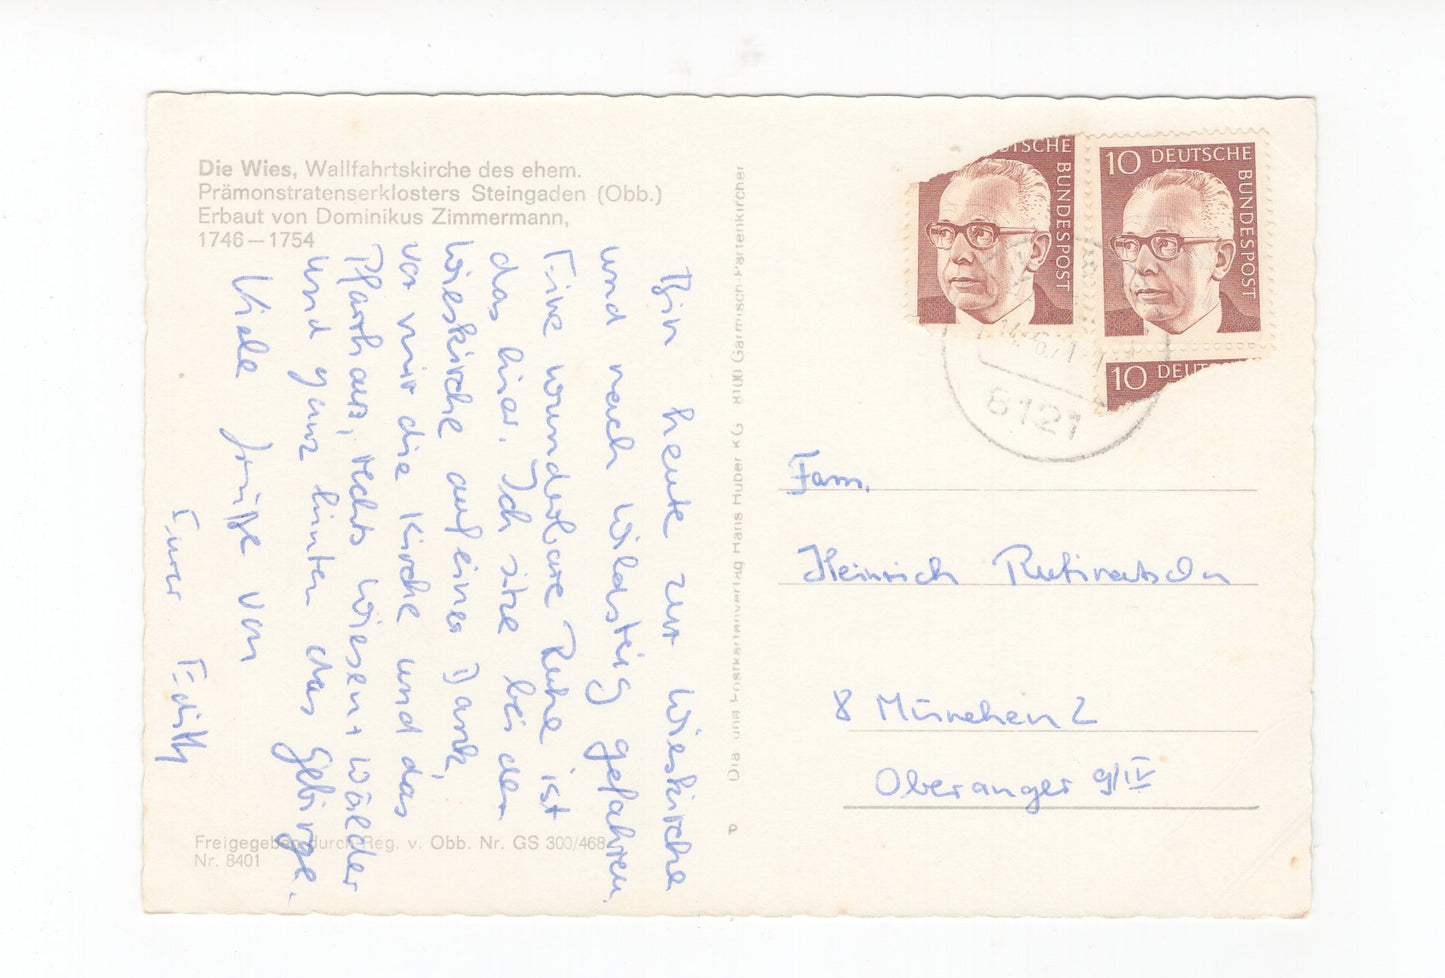 Die Wies, Wallfahrtskirche des ehem.
Prämonstratenserklosters Steingaden (Obb.)
Erbaut von Dominikus Zimmermann,
1746–1754
Bin heute zur Wieskirche
und nach Wildsteig gefahren.
Eine wunderbare Ruhe ist
das hier. Ich sitze bei der
Wieskirche auf einer Bank,
vor mir die Kirche und das
Pfarrhaus, rechts Wiesen + Wälder
und ganz hinten das Gebirge.
Viele Grüße von
Eurer Edith
Freigegeben durch Reg. v. Obb. Nr. GS 300/468
Nr. 8401
Dia und Postkartenverlag Hans Huber KG 8100 Garmisch-Partenkirchen
P
DEUTSCHE
BUNDESPOST
10 DEUTSCHE
BUNDESPOST
10 DEUT
8121
Fam.
Heinrich
8 München 2
Oberanger 9/IV